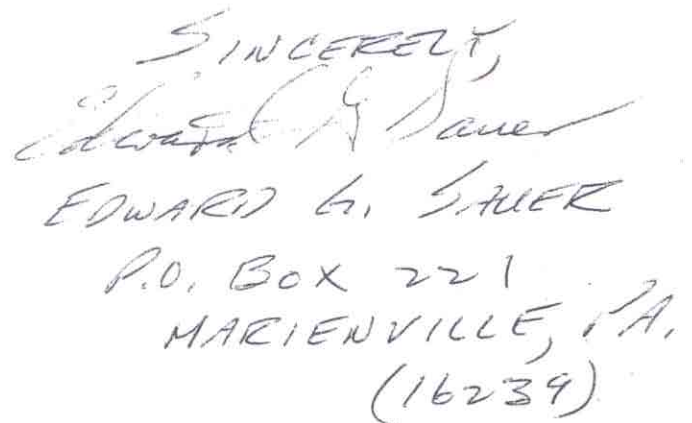 SINCERELY,
Edward G Sauer
EDWARD G. SAUER
P.O. BOX 221
MARIENVILLE, PA.
(16239)